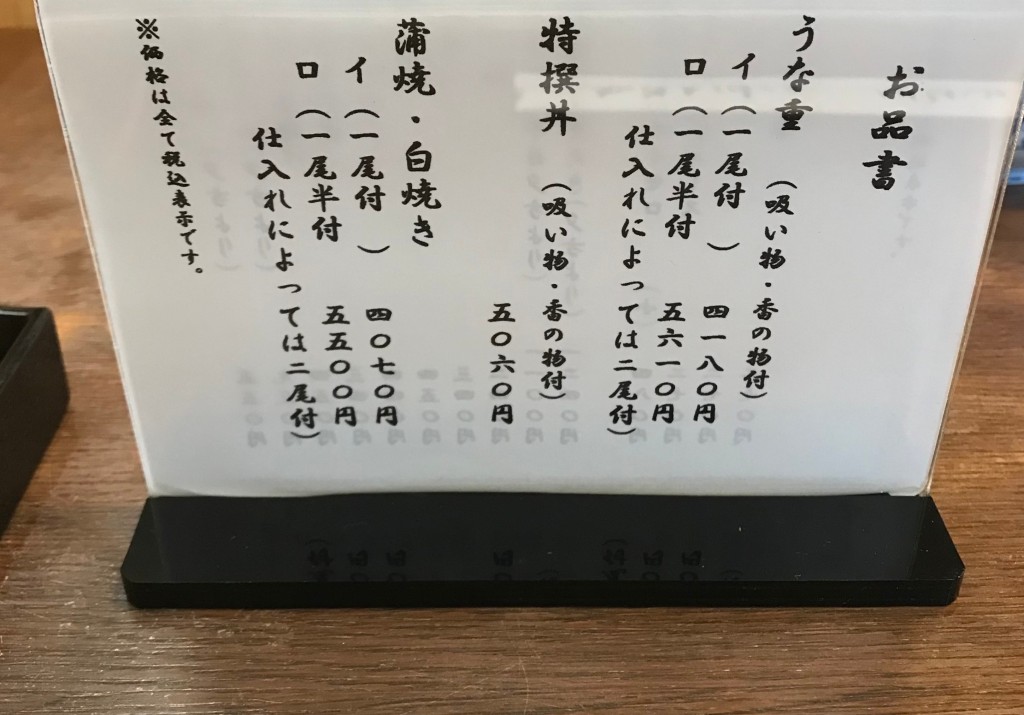 お品書
うな重 (吸い物・香の物付)
イ (一尾付 ) 四一八〇円
ロ (一尾半付 五六一〇円
仕入れによっては二尾付)
特撰丼 (吸い物・香の物付)
五〇六〇円
蒲焼・白焼き
イ (一尾付 ) 四〇七〇円
ロ (一尾半付 五五〇〇円
仕入れによっては二尾付)
※価格は全て税込表示です。